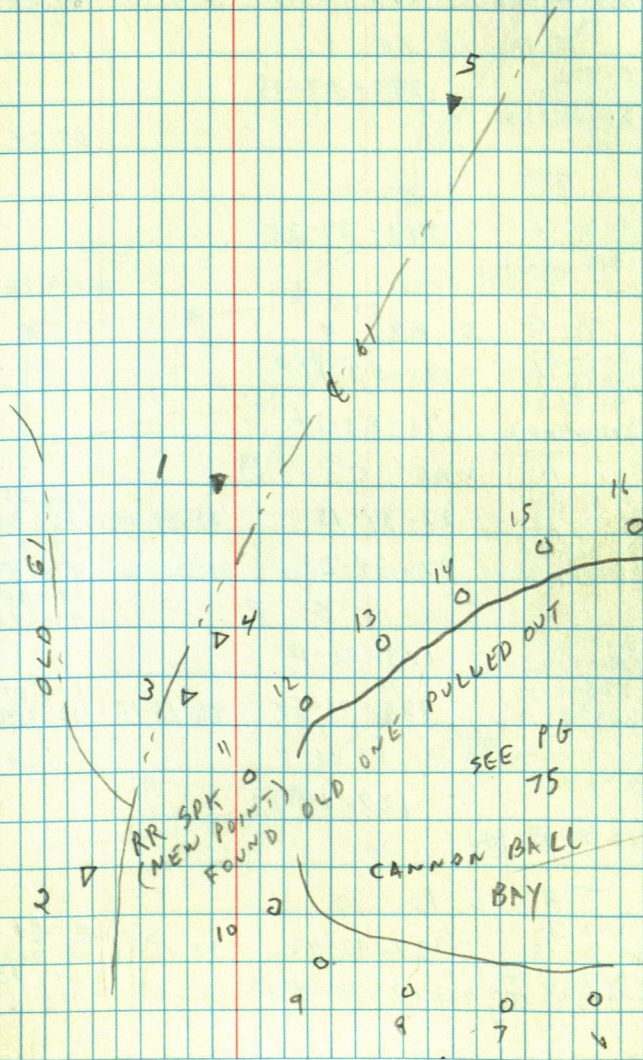 5
℄ 61
1
16
15
OLD 61
14
4
13
3
12
11
RR SPK
(NEW POINT)
FOUND OLD ONE PULLED OUT
SEE PG
75
CANNON BALL
BAY
2
10
9
8
7